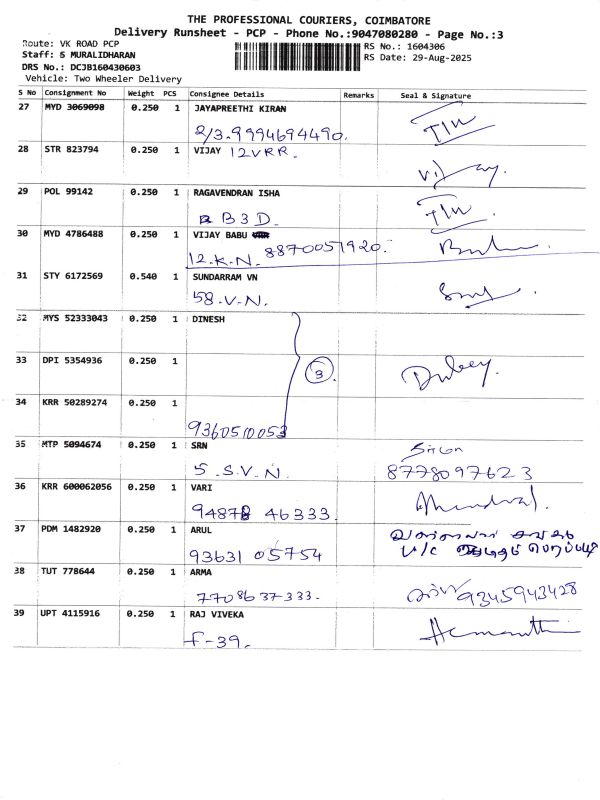 THE PROFESSIONAL COURIERS, COIMBATORE
Delivery Runsheet - PCP - Phone No.:9047080280 - Page No.:3
Route: VK ROAD PCP
RS No.: 1604306
Staff: S MURALIDHARAN
RS Date: 29-Aug-2025
DRS No.: DCJB160430603
Vehicle: Two Wheeler Delivery
S No Consignment No Weight PCS Consignee Details Remarks Seal & Signature
27 MYD 3069098 0.250 1 JAYAPREETHI KIRAN
2/3.9994694490.
28 STR 823794 0.250 1 VIJAY 12VRR.
Vijay.
29 POL 99142 0.250 1 RAGAVENDRAN ISHA
B3D.
30 MYD 4786488 0.250 1 VIJAY BABU
12.K.N. 8870051920.
31 STY 6172569 0.540 1 SUNDARRAM VN
58.V.N.
32 MYS 52333043 0.250 1 DINESH
33 DPI 5354936 0.250 1
3
34 KRR 50289274 0.250 1
9360510053
35 MTP 5094674 0.250 1 SRN
5.S.V.N. 8778097623
36 KRR 600062056 0.250 1 VARI
94878 46333.
37 PDM 1482920 0.250 1 ARUL
93631 05754
38 TUT 778644 0.250 1 ARMA
7708637333. 9345943428
39 UPT 4115916 0.250 1 RAJ VIVEKA
f-39. Hemanth